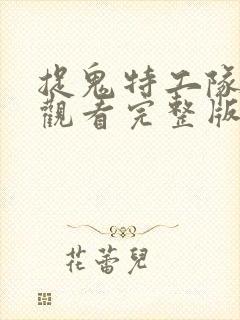 捉鬼特工隊
觀看完整版
花蕾兒